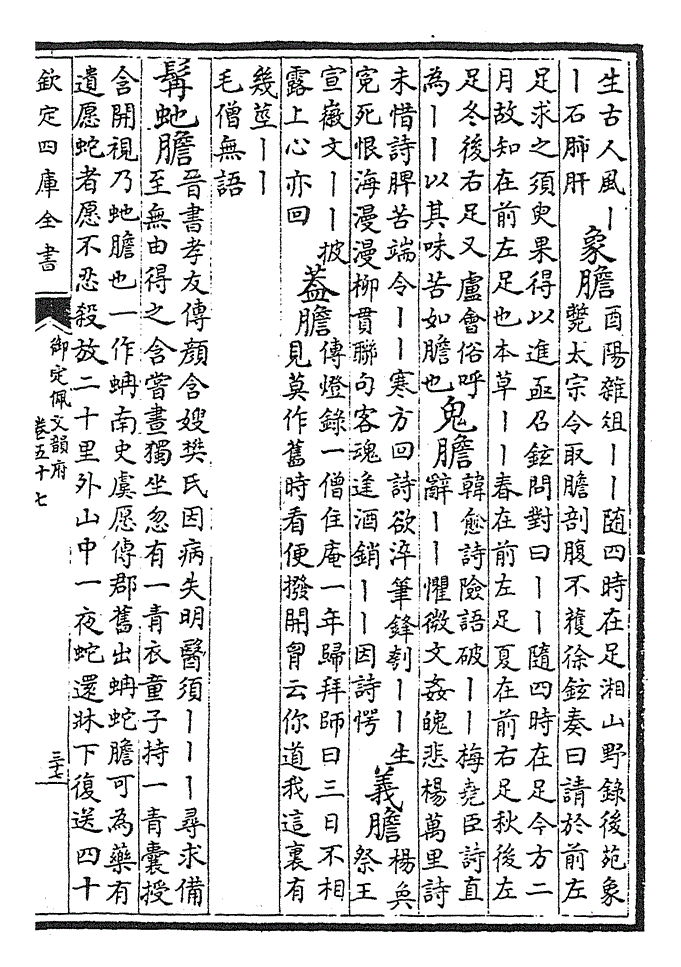 生古人風丨
丨石肺肝
象膽
酉陽雜俎丨丨隨四時在足湘山野錄後苑象
斃太宗令取膽剖腹不獲徐鉉奏曰請於前左
足求之須臾果得以進亟召鉉問對曰丨丨隨四時在足今方二
月故知在前左足也本草丨丨春在前左足夏在前右足秋後左
足冬後右足又盧會俗呼
為丨丨以其味苦如膽也
鬼膽
韓愈詩險語破丨丨梅堯臣詩直
辭丨丨懼微文姦魄悲楊萬里詩
未惜詩脾苦端令丨丨寒方回詩欲淬筆鋒刳丨丨生
寃死恨海漫漫柳貫聯句客魂逢酒銷丨丨因詩愕
義膽
楊奐
祭王
宣徽文丨丨披
露上心亦回
蓋膽
傳燈錄一僧住庵一年歸拜師曰三日不相
見莫作舊時看便撥開胷云你道我這裏有
幾莖丨丨
毛僧無語
髯虵膽
晉書孝友傳顏含嫂樊氏因病失明醫須丨丨丨尋求備
至無由得之含嘗晝獨坐忽有一青衣童子持一青囊授
含開視乃虵膽也一作蚺南史虞愿傳郡舊出蚺蛇膽可為藥有
遺愿蛇者愿不忍殺放二十里外山中一夜蛇還牀下復送四十
欽定四庫全書
御定佩文韻府
卷五十七
三十七